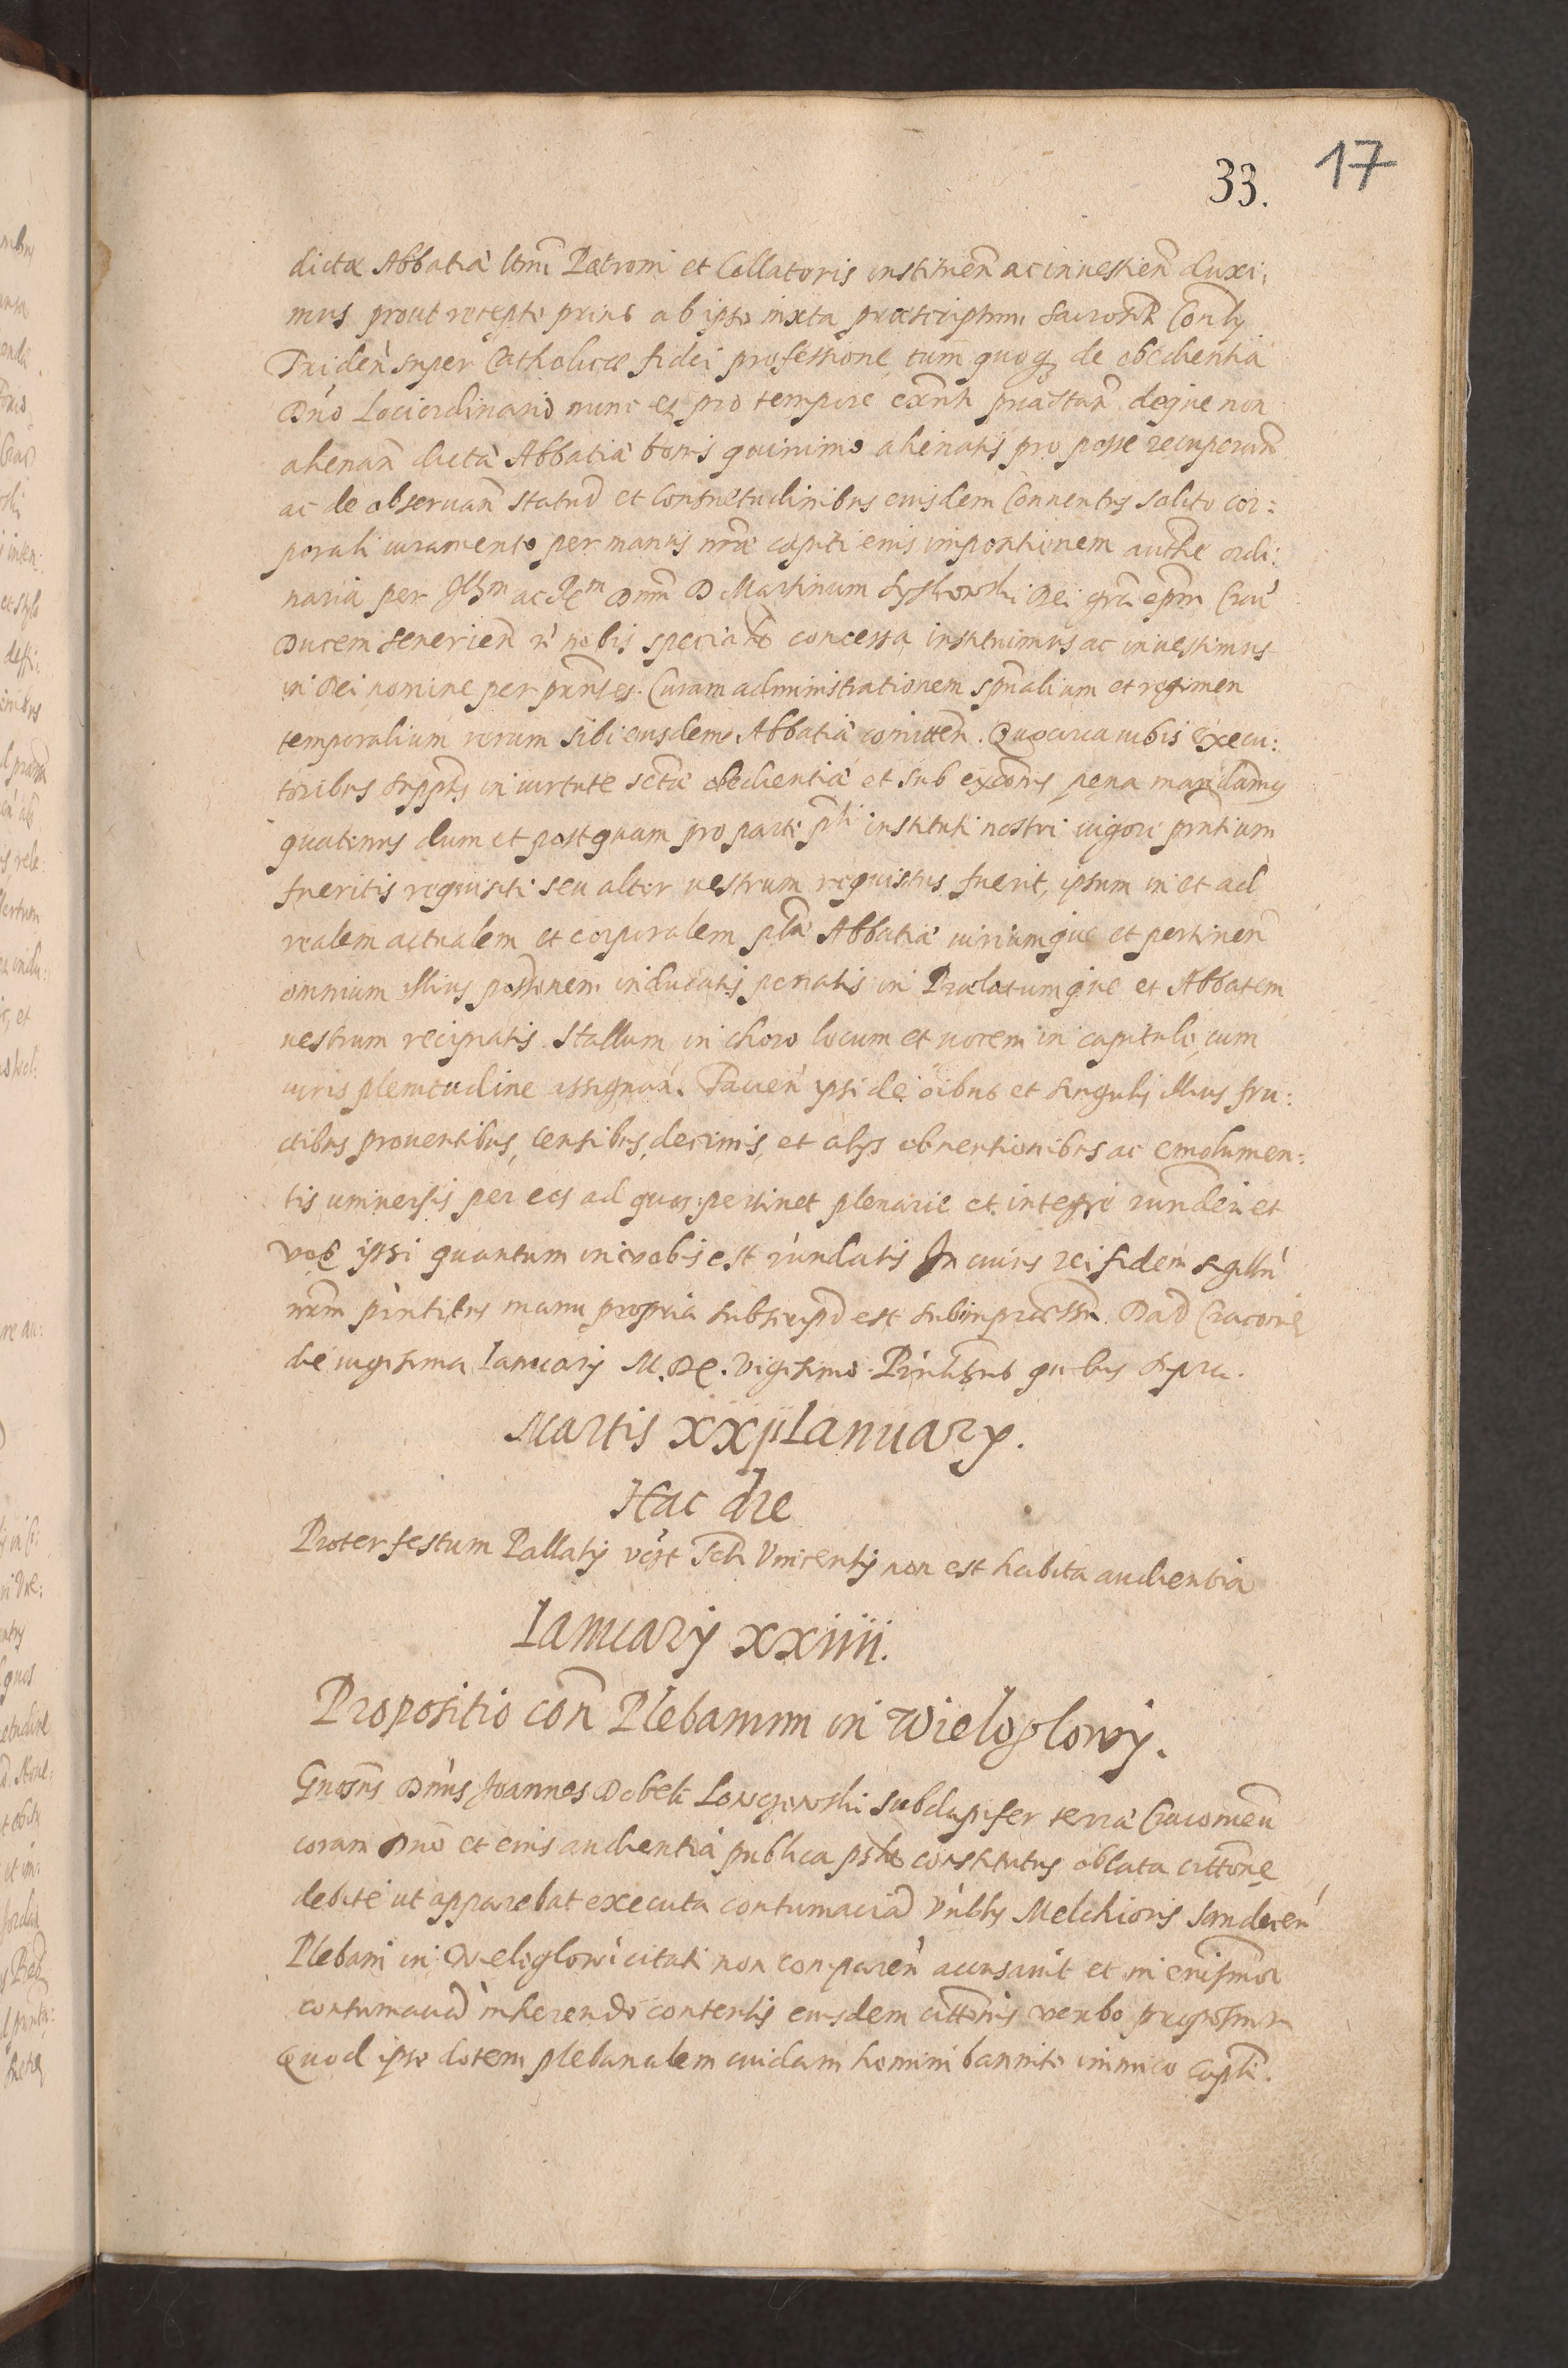 33. 17
dictæ Abbatiæ ltimi Patroni et Collatoris instituen̄ ac inuestien̄ duxi:
mus prout recepto prius ab ipso iuxta præscriptum Sacrosti Conly
Triden̄ super Catholicæ fidei professione tum quoqȝ de obedientia
Dn̄o Lociordinario nunc et pro tempore exn̄ti præstan̄ deque non
alienan̄ dictæ Abbatiæ bonis quinimo alienatis pro posse recuperan̄
ac de obseruan̄ statut et Consuetudinibus eiusdem Conuentus solito cor:
porali iuramento per manus nræ capiti eius impositionem autħe ordi:
naria per Illm ac Rm Dnm D Martinum Szyszkowski Dei gra epm Crac
Ducem Seuerien̄ nobis specialr concessa instituimus ac inuestimus
in Dei nomine per pn̄tes. Curam administrationem spn̄alium et regimen
temporalium rerum sibi eiusdem Abbatiæ comitten̄. Quocirca uobis execu:
toribus supptis in uirtute sctæ obedientiæ et sub excōnis pena mandamus
quatenus dum et postquam pro parte pti instituti nostri uigore pn̄tium
fueritis requisiti seu alter uestrum requisitus fuerit, ipsum in et ad
realem actualem et corporalem ptæ Abbatiæ iuriumque et pertinen̄
omnium illius possōnem inducatis ponatis in Prælatumque et Abbatem
uestrum recipiatis. Stallum in choro locum et uocem in capitulo cum
iuris plenitudine assignan̄. Facien̄ ipsi de oibus et singulis illius fru:
ctibus prouentibus, censibus, decimis, et alijs obuentionibus ac emolumen:
tis uniuersis per eos ad quos pertinet plenarie et integre runderi et
vos ipsi quantum in uobis est rundatis In cuius rei fidem sigillu
nrm pn̄tibus manu propria subscript est subimpressu. Dat Cracouiæ
die uigesima Ianuarij M. DC. Vigesimo. Pn̄tibus quibus supra.
Martis xxij Ianuarij.
Hac die
Propter festum Pallatij Scti Vincentij non est habita audientia
Ianuarij xxiiii.
Propositio con̄ Plebanum in Wieloglowy.
Gnosus Dn̄us Joannes Dobek Lowczowski Subdapifer terræ Cracouien̄
coram Dn̄o et eius audientia publica psltr constitutus oblata cittōne
debite ut apparebat executa contumaciā Vnblis Melchioris Sandecen̄
Plebani in Wieloglowi citati non comparen̄ accusauit et in eiusmōi
contumaciā inherendo contentis eiusdem cittōnis uerbo proposuit
Quod ipse dotem plebanalem cuidam homini bannito inimico capli.